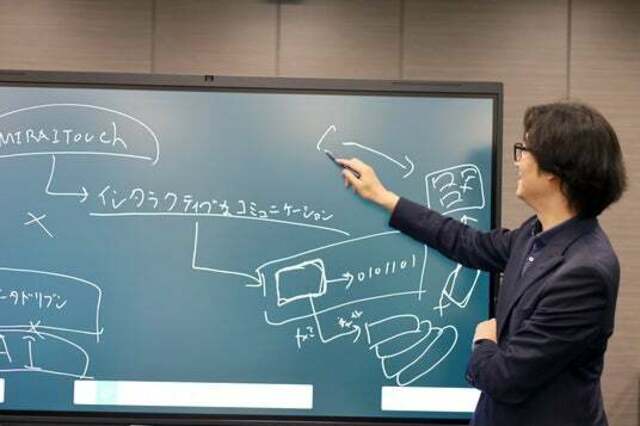 MIRAITouch
インタラクティブなコミュニケーション
0101101
タドリブン
AI